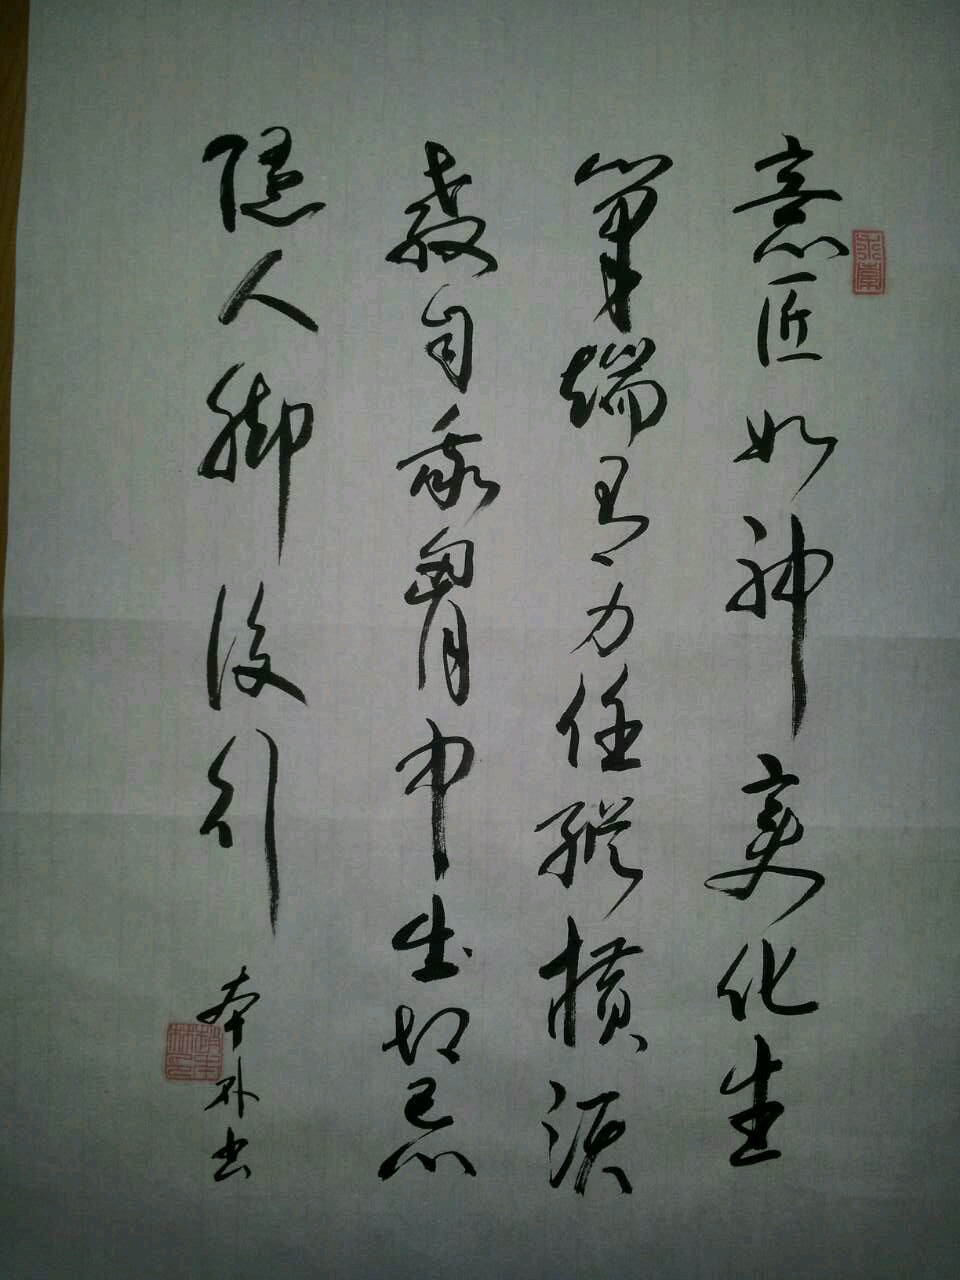 意匠如神变化生
笔端有力任纵横须
教自我胸中出切忌
随人脚后行
本朴书